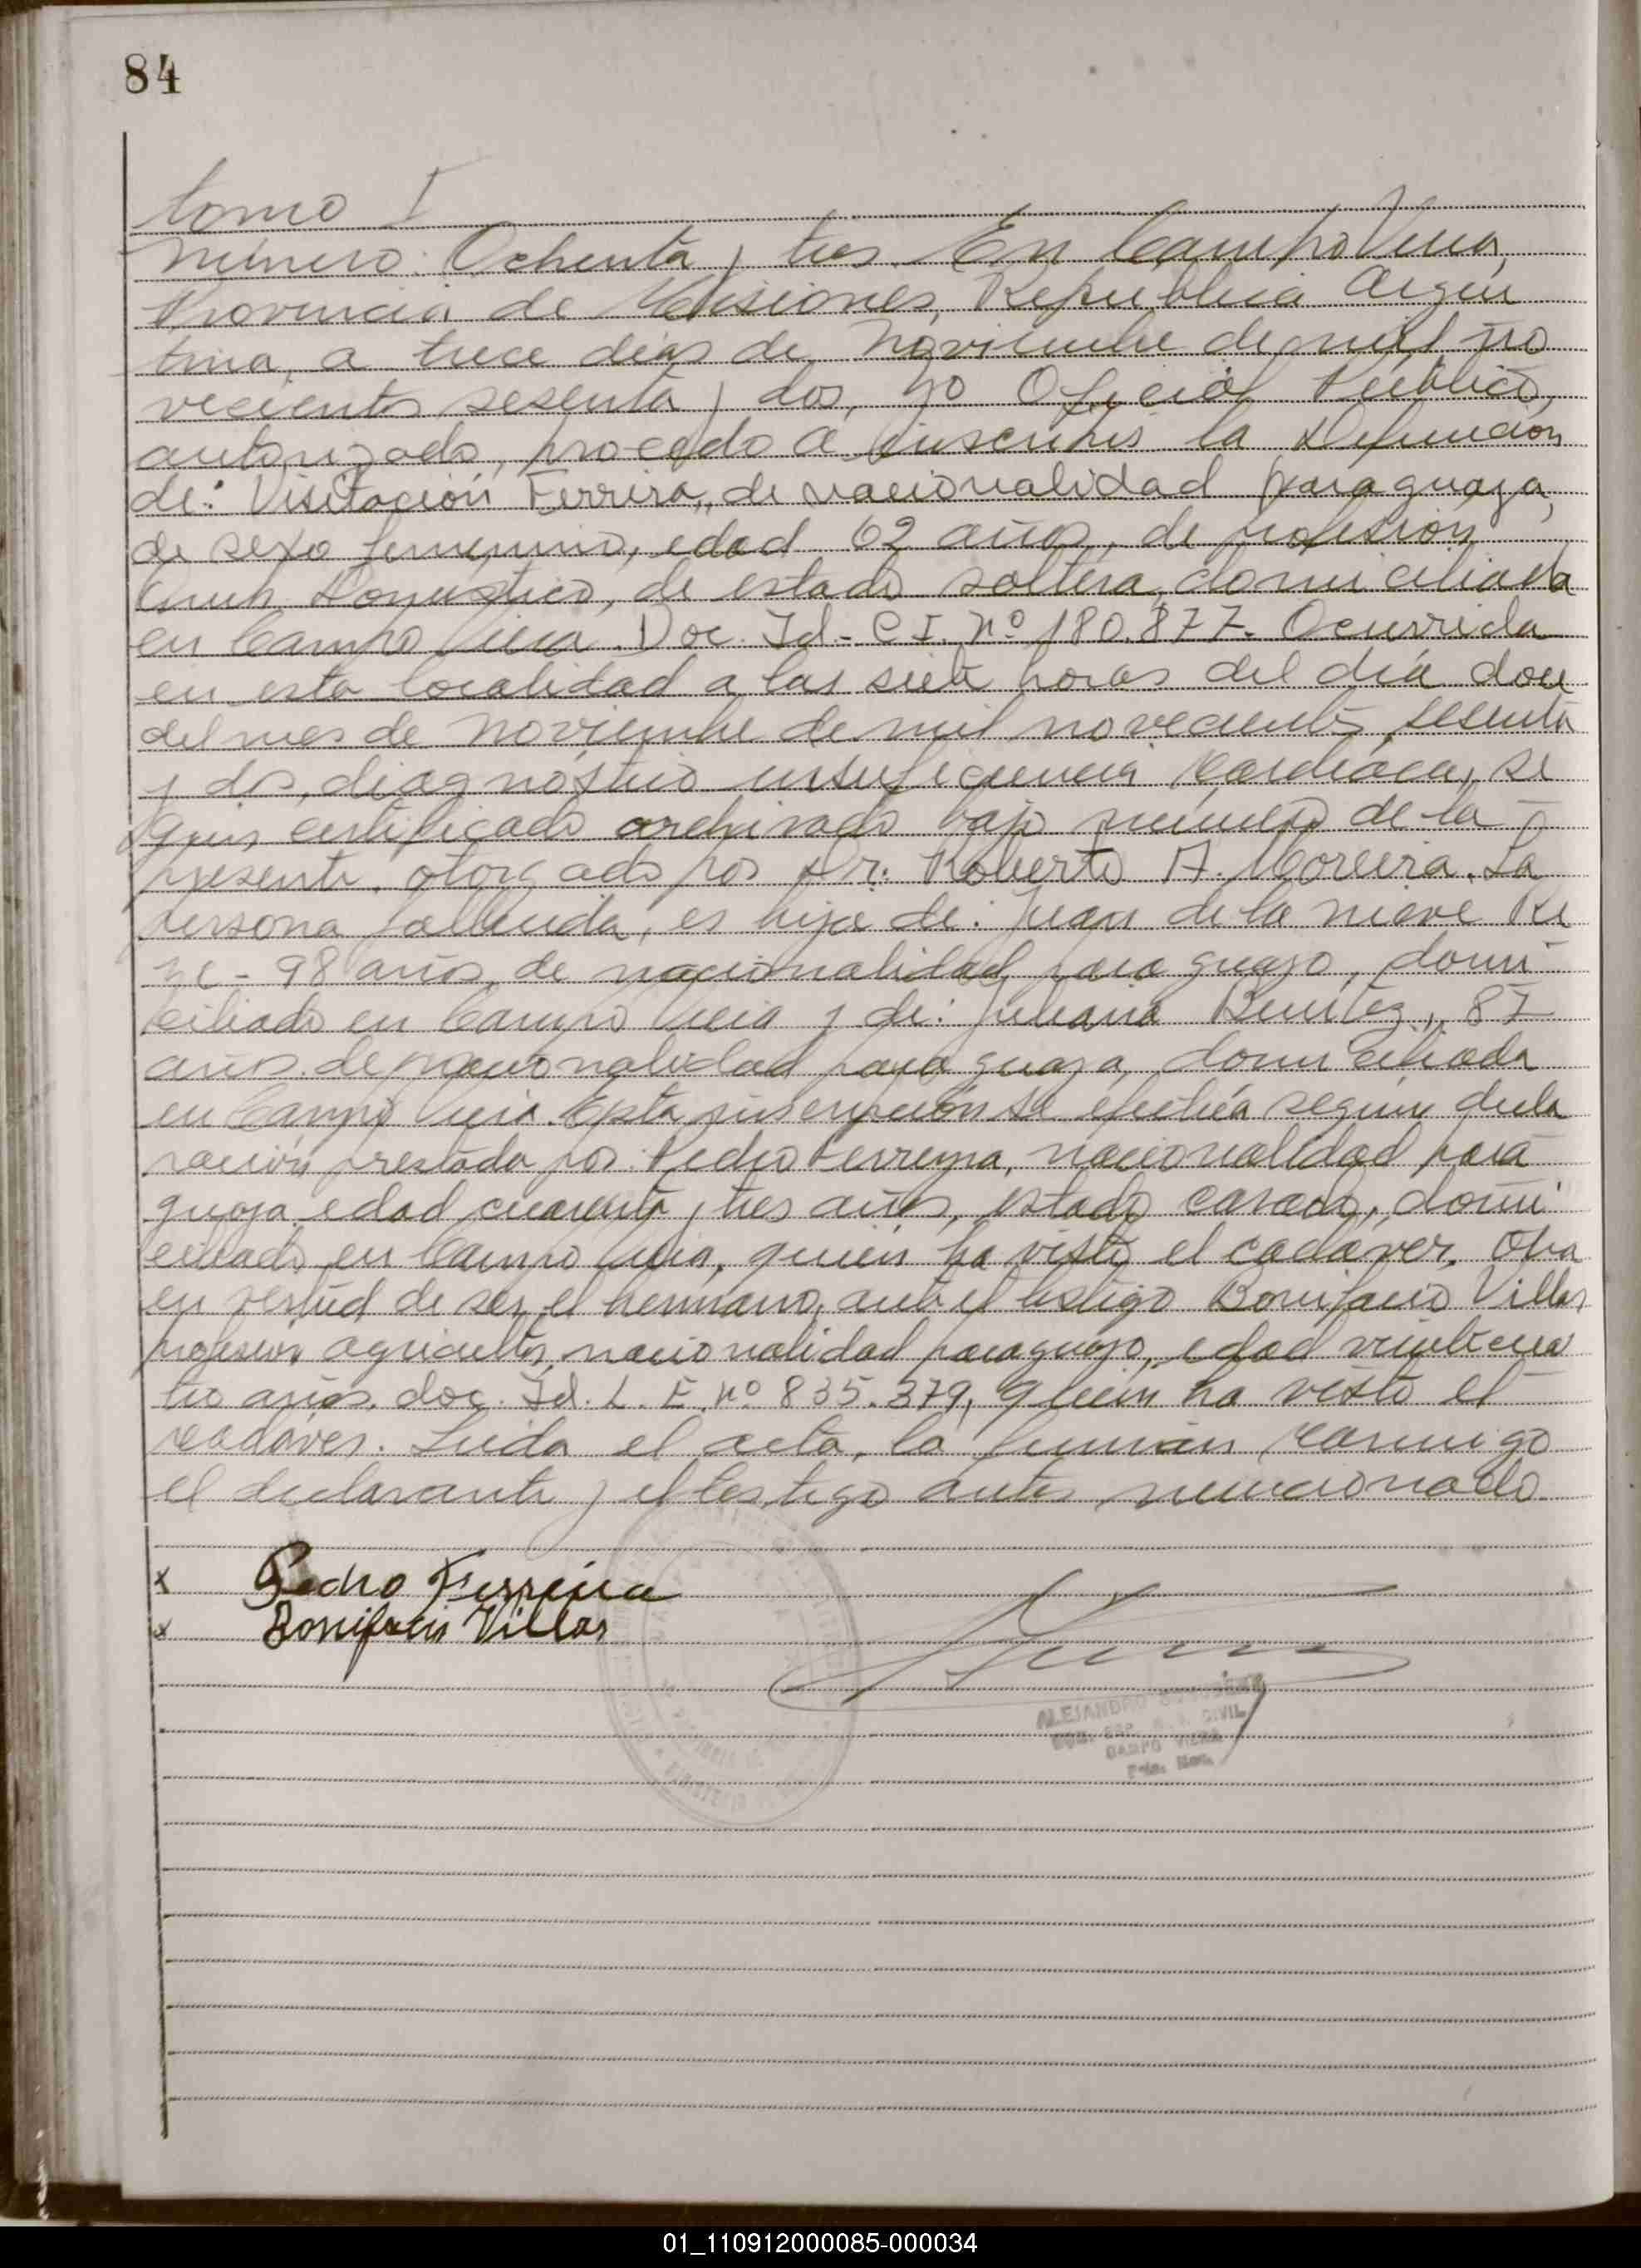 84
Tomo I
Número: Ochenta y tres. En Campo Viera,
Provincia de Misiones, República Argen
tina, a trece días de Noviembre de mil no
vecientos sesenta y dos, yo Oficial Público,
autorizado, procedo a inscribir la Defunción
de: Visitación Ferrira, de nacionalidad paraguaya,
de sexo femenino, edad 62 años, de profesión
Domestico, de estado soltera, domiciliada
en Campo Viera. Doc. Id. C I. Nº 180.877. Ocurrida
en esta localidad a las siete horas del día doce
del mes de Noviembre de mil novecientos sesenta
y dos, diagnóstico insuficiencia Cardiaca, se
gún certificado archivado bajo número de la
presente, otorgado por Dr. Roberto A. Moreira. La
persona fallecida, es hija de: Juan de la nieve
98 años, de nacionalidad paraguayo, domi
ciliado en Campo Viera y de: Juliana Benítez, 87
años de nacionalidad paraguaya, domiciliada
en Campo Viera. Esta inscripción se efectúa según decla
ración prestada por: Pedro Ferreyra, nacionalidad para
guaya, edad cuarenta y tres años, estado casado, domi
ciliado en Campo Viera, quien ha visto el cadáver. Obra
en vertud de ser el hermano, ante el testigo Bonifacio Villar
profesion agricultor, nacionalidad paraguayo, edad veinticua
tro años. doc. Id. L. E. Nº 835.379, quien ha visto el
cadáver. Leida el acta, la firman conmigo
el declarante y el testigo antes mencionado
x Pedro Ferreira
x Bonifacio Villar
ALEJANDRO
CIVIL
CAMPO VIERA
01_110912000085-000034